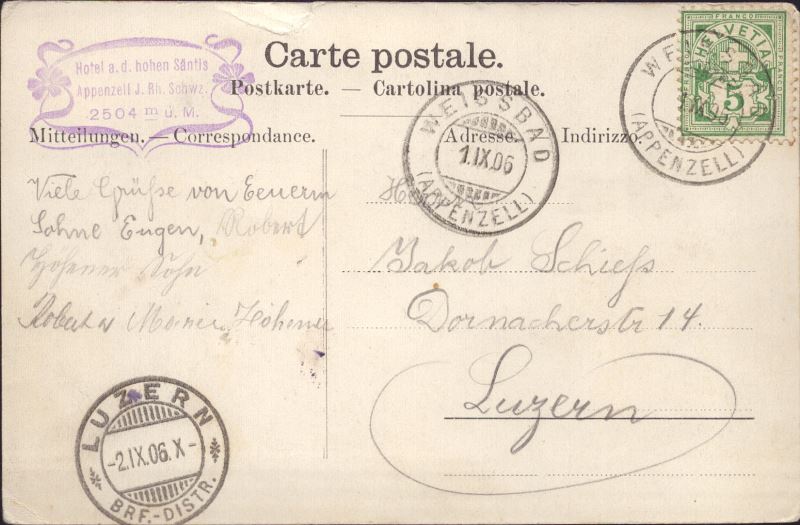 Carte postale.
Postkarte. — Cartolina postale.
Hotel a. d. hohen Säntis
Appenzell J. Rh. Schwz.
2504 m ü. M.
Mitteilungen. — Correspondance.
Adresse. Indirizzo.
FRANCO
HELVETIA
5
WEISSBAD
1.IX.06
(APPENZELL)
WEI
1.IX.06
(APPENZELL)
Viele Grüße von Eeuerm
Sohne Eugen, Robert
Höhener Sohn
Robert u Höhener
Jakob Schieß
Dornacherstr 14.
Luzern
LUZERN
-2.IX.06.X-
BRF.-DISTR.